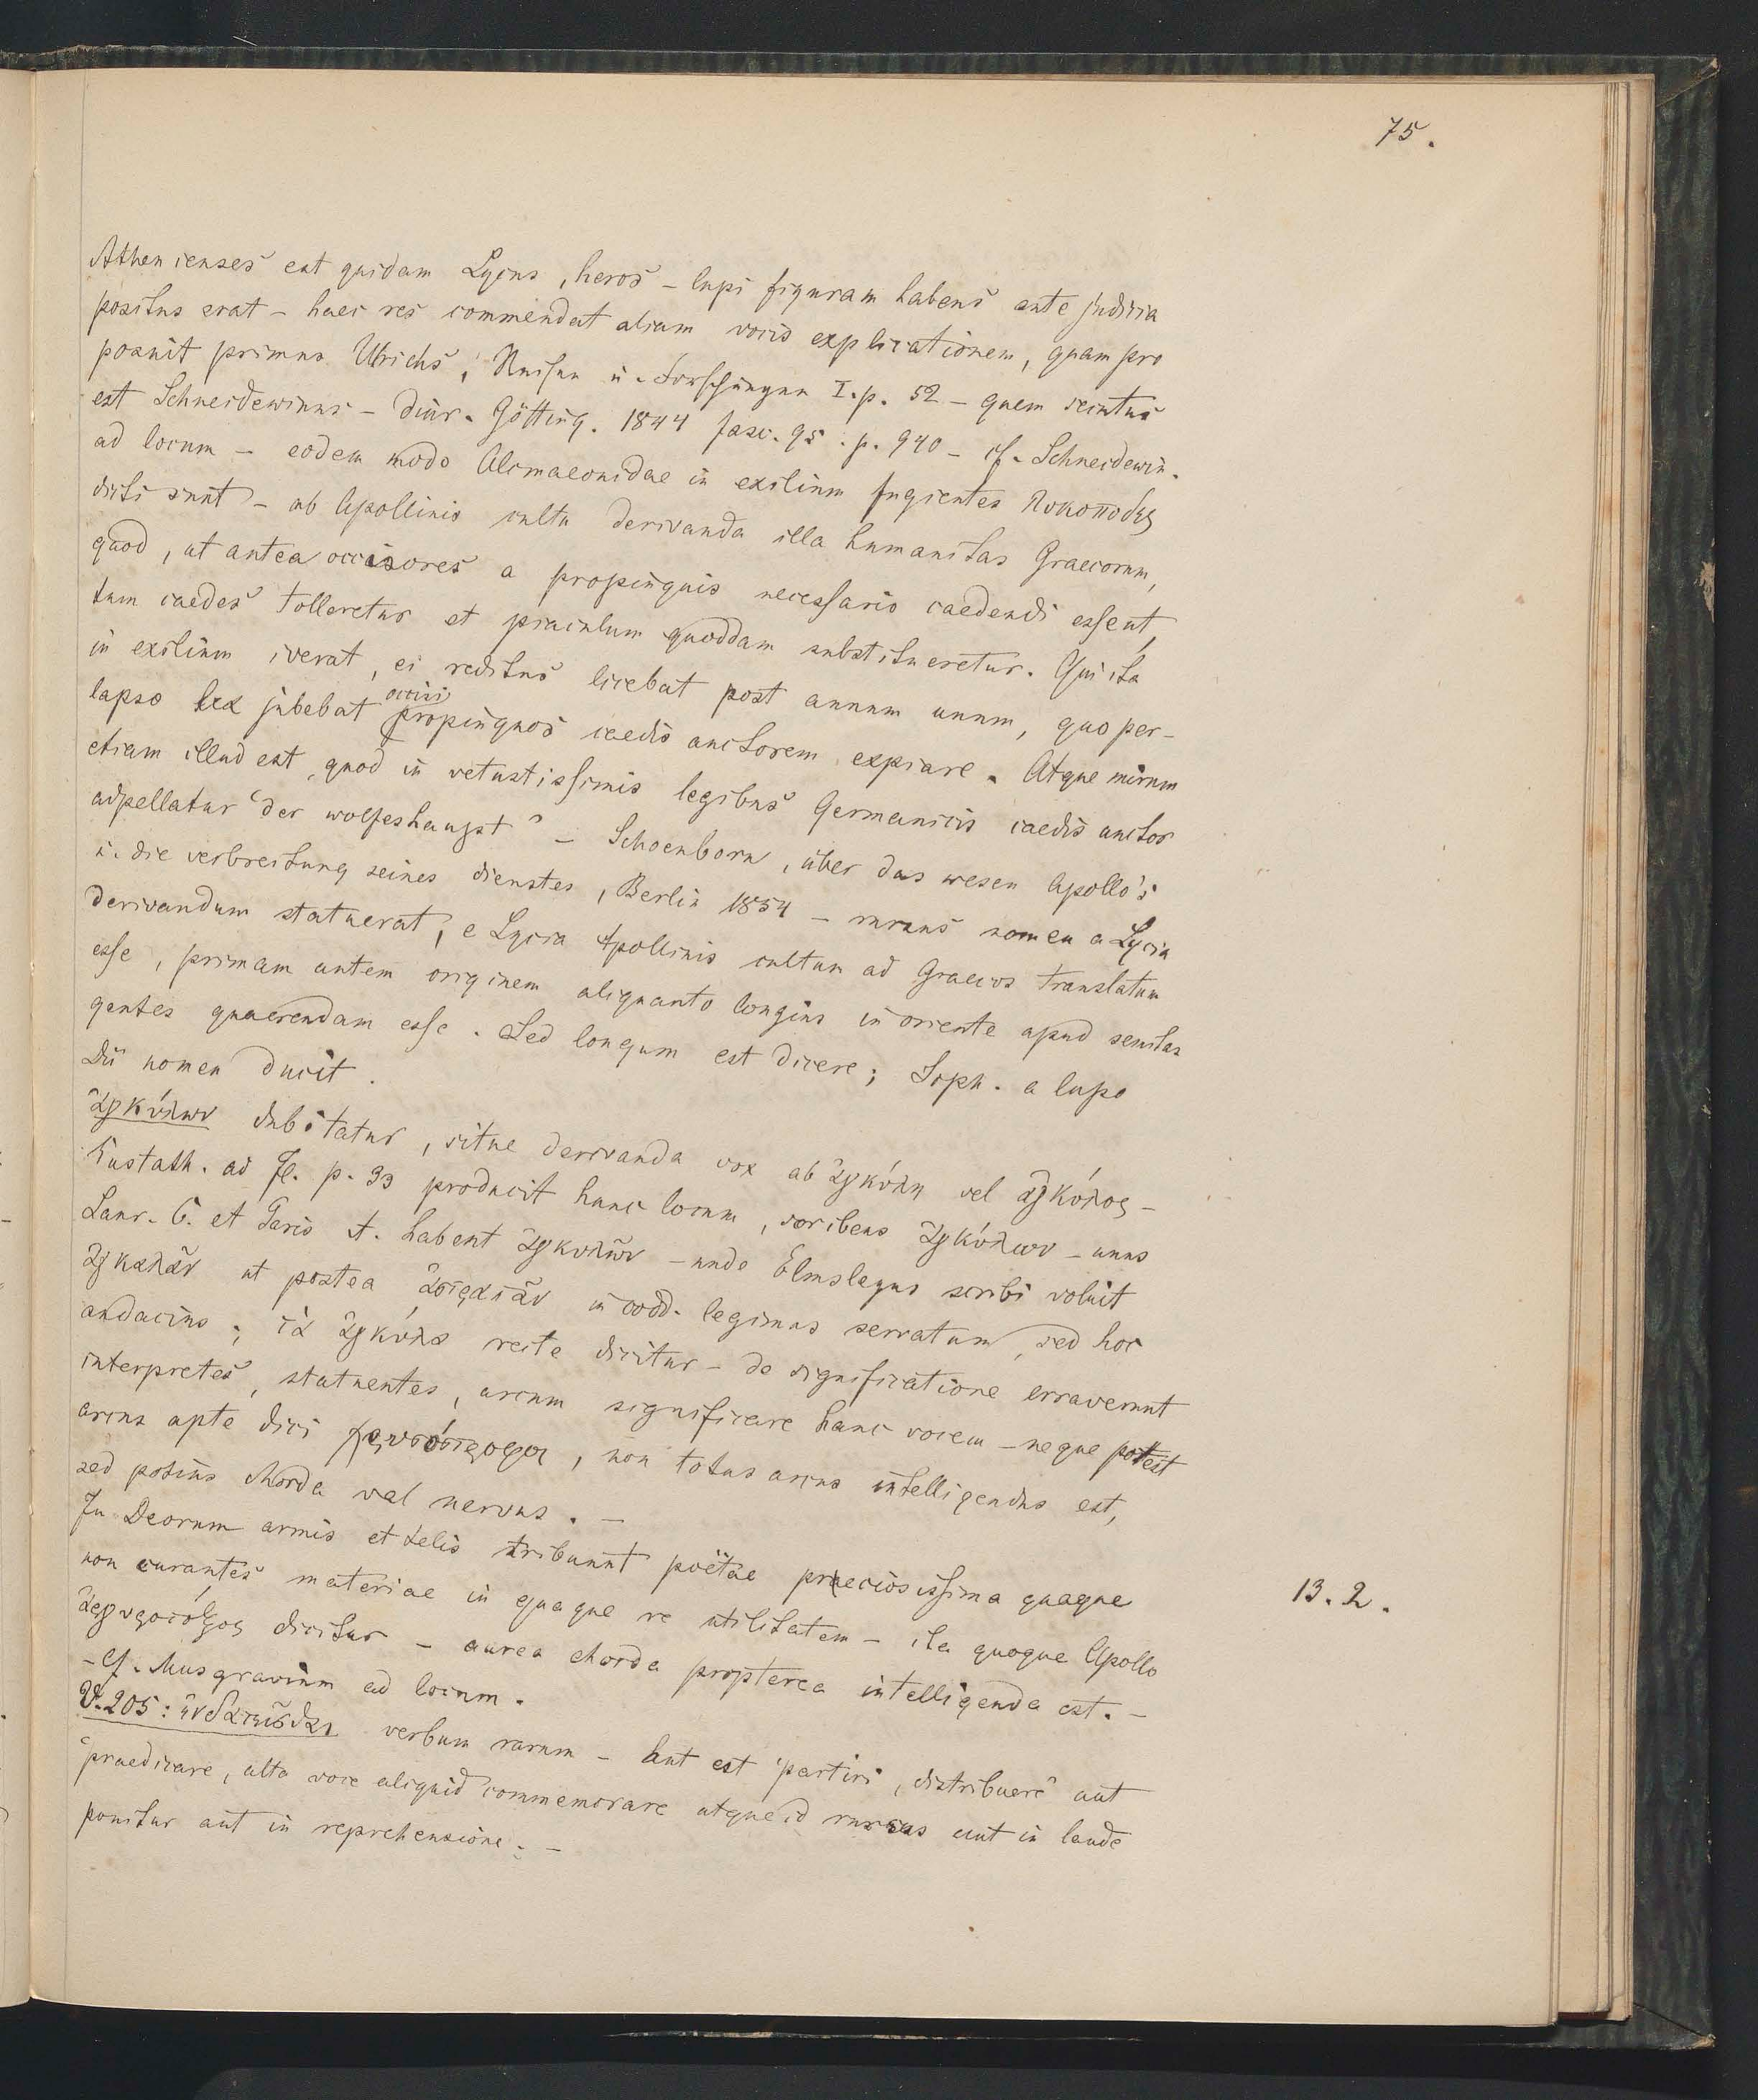 75.
Athenienses est quidam Lycus, heros – lupi figuram habens ante judicia
positus erat – haec res commendat aliam vocis explicationem, quam pro
posuit primus Ulrichs, Reisen u. Forschungen I. p. 52 – quem secutus
est Schneidewinus – diar. Götting. 1844 fasc. 95. p. 940 – cf. Schneidewin.
ad locum – eodem modo Alcmaeonidae in exilium fugientes λυκοποδες
dicti sunt – ab Apollinis cultu derivanda illa humanitas Graecorum,
quod, ut antea occisores a propinquis necessario caedendi essent,
tum caedes tolleretur et piaculum quoddam substitueretur. Qui ita
in exilium iverat, ei reditus licebat post annum unum, quo per-
lapso lex jubebat occisi propinquos caedis auctorem expiare. Atque mirum
etiam illud est, quod in vetustissimis legibus Germanicis caedis auctor
adpellatur "der wolfeshaupt" – Schoenborn, über das wesen Apollo's
u. die verbreitung seines dienstes, Berlin 1854 – rursus nomen a Lycia
derivandum statuerat; e Lycia Apollinis cultum ad Graecos translatum
esse, primam autem originem aliquanto longius in oriente apud semitas
gentes quaerendam esse. Sed longum est dicere; Soph. a lupo
dii nomen ducit.
ἀγκύλων dubitatur, sitne derivanda vox ab ἀγκύλη vel ἀγκύλος –
Eustath. ad Il. p. 33 producit hunc locum, scribens ἀγκύλων – unus
Laur. b. et Paris A. habent ἀγκυλῶν – unde Elmsleyus scribi voluit
ἀγκυλᾶν ut postea in codd. legimus servatum, sed hoc
audacius; τὰ ἀγκύλα recte dicitur – de significatione erraverunt
interpretes, statuentes, arcum significare hanc vocem – neque potest
arcus apte dici χρυσόστροφος, non totus arcus intelligendus est,
sed potius chorda vel nervus. –
In Deorum armis et telis tribuunt poëtae praeciosissima quaeque
non curantes materiae in quaque re utilitatem – ita quoque Apollo
ἀργυρότοξος dicitur – aurea chorda propterea intelligenda est. –
– cf. Musgravium ad locum.
13. 2.
V. 205: ἐνδατεῖσθαι verbum rarum – Aut est "partiri, distribuere" aut
"praedicare, alta voce aliquid commemorare atque id rursus aut in laude
ponitur aut in reprehensione. –